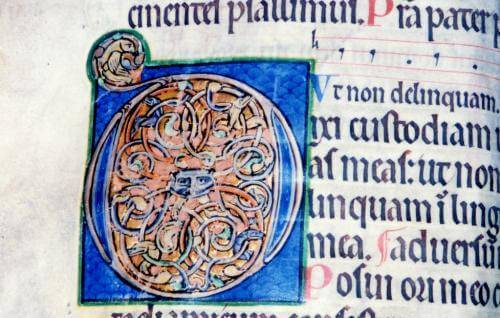 cinentes psallimus. pater p
Vt non delinquam
Dixi custodiam
as meas: ut non
linquam ī ling
mea. Faduersu
Posui ori meo c